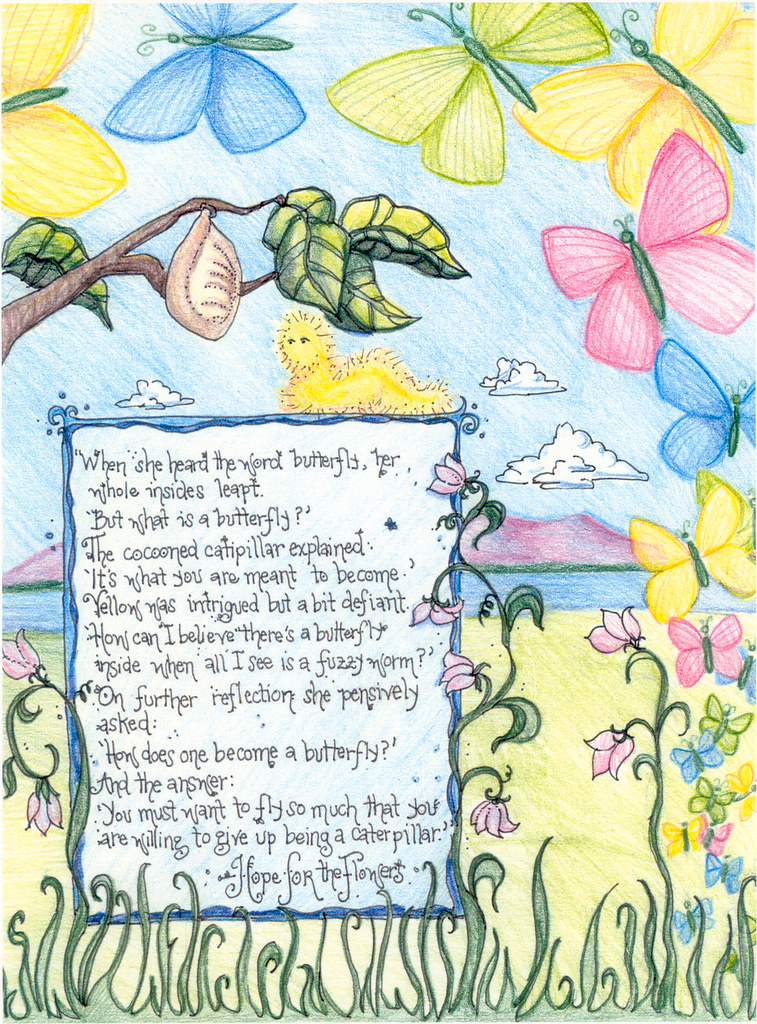 "When she heard the word butterfly, her
whole insides leapt.
'But what is a butterfly?'
The cocooned catipillar explained.
'It's what you are meant to become.'
Yellow was intrigued but a bit defiant.
'How can I believe there's a butterfly
inside when all I see is a fuzzy worm?'
On further reflection she pensively
asked:
'How does one become a butterfly?'
And the answer:
'You must want to fly so much that you
are willing to give up being a caterpillar.'"
~Hope for the Flowers